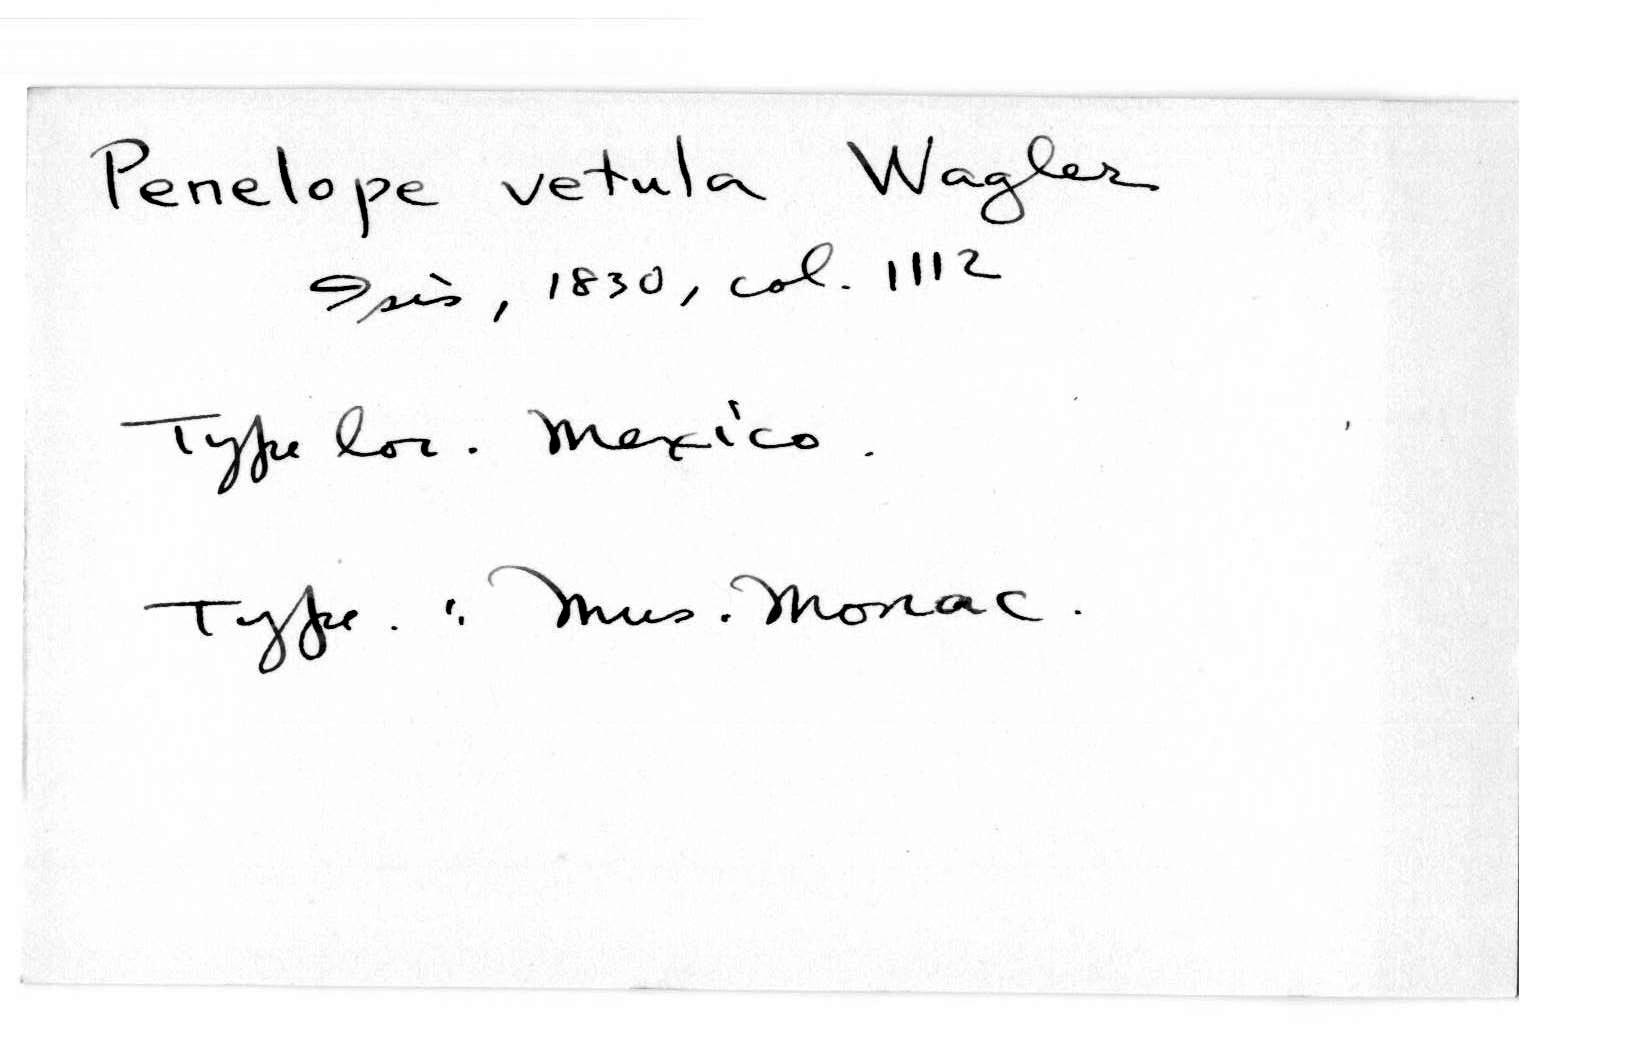 Penelope vetula Wagler
Isis, 1830, col. 1112
Type loc. Mexico.
Type. : Mus. Monac.